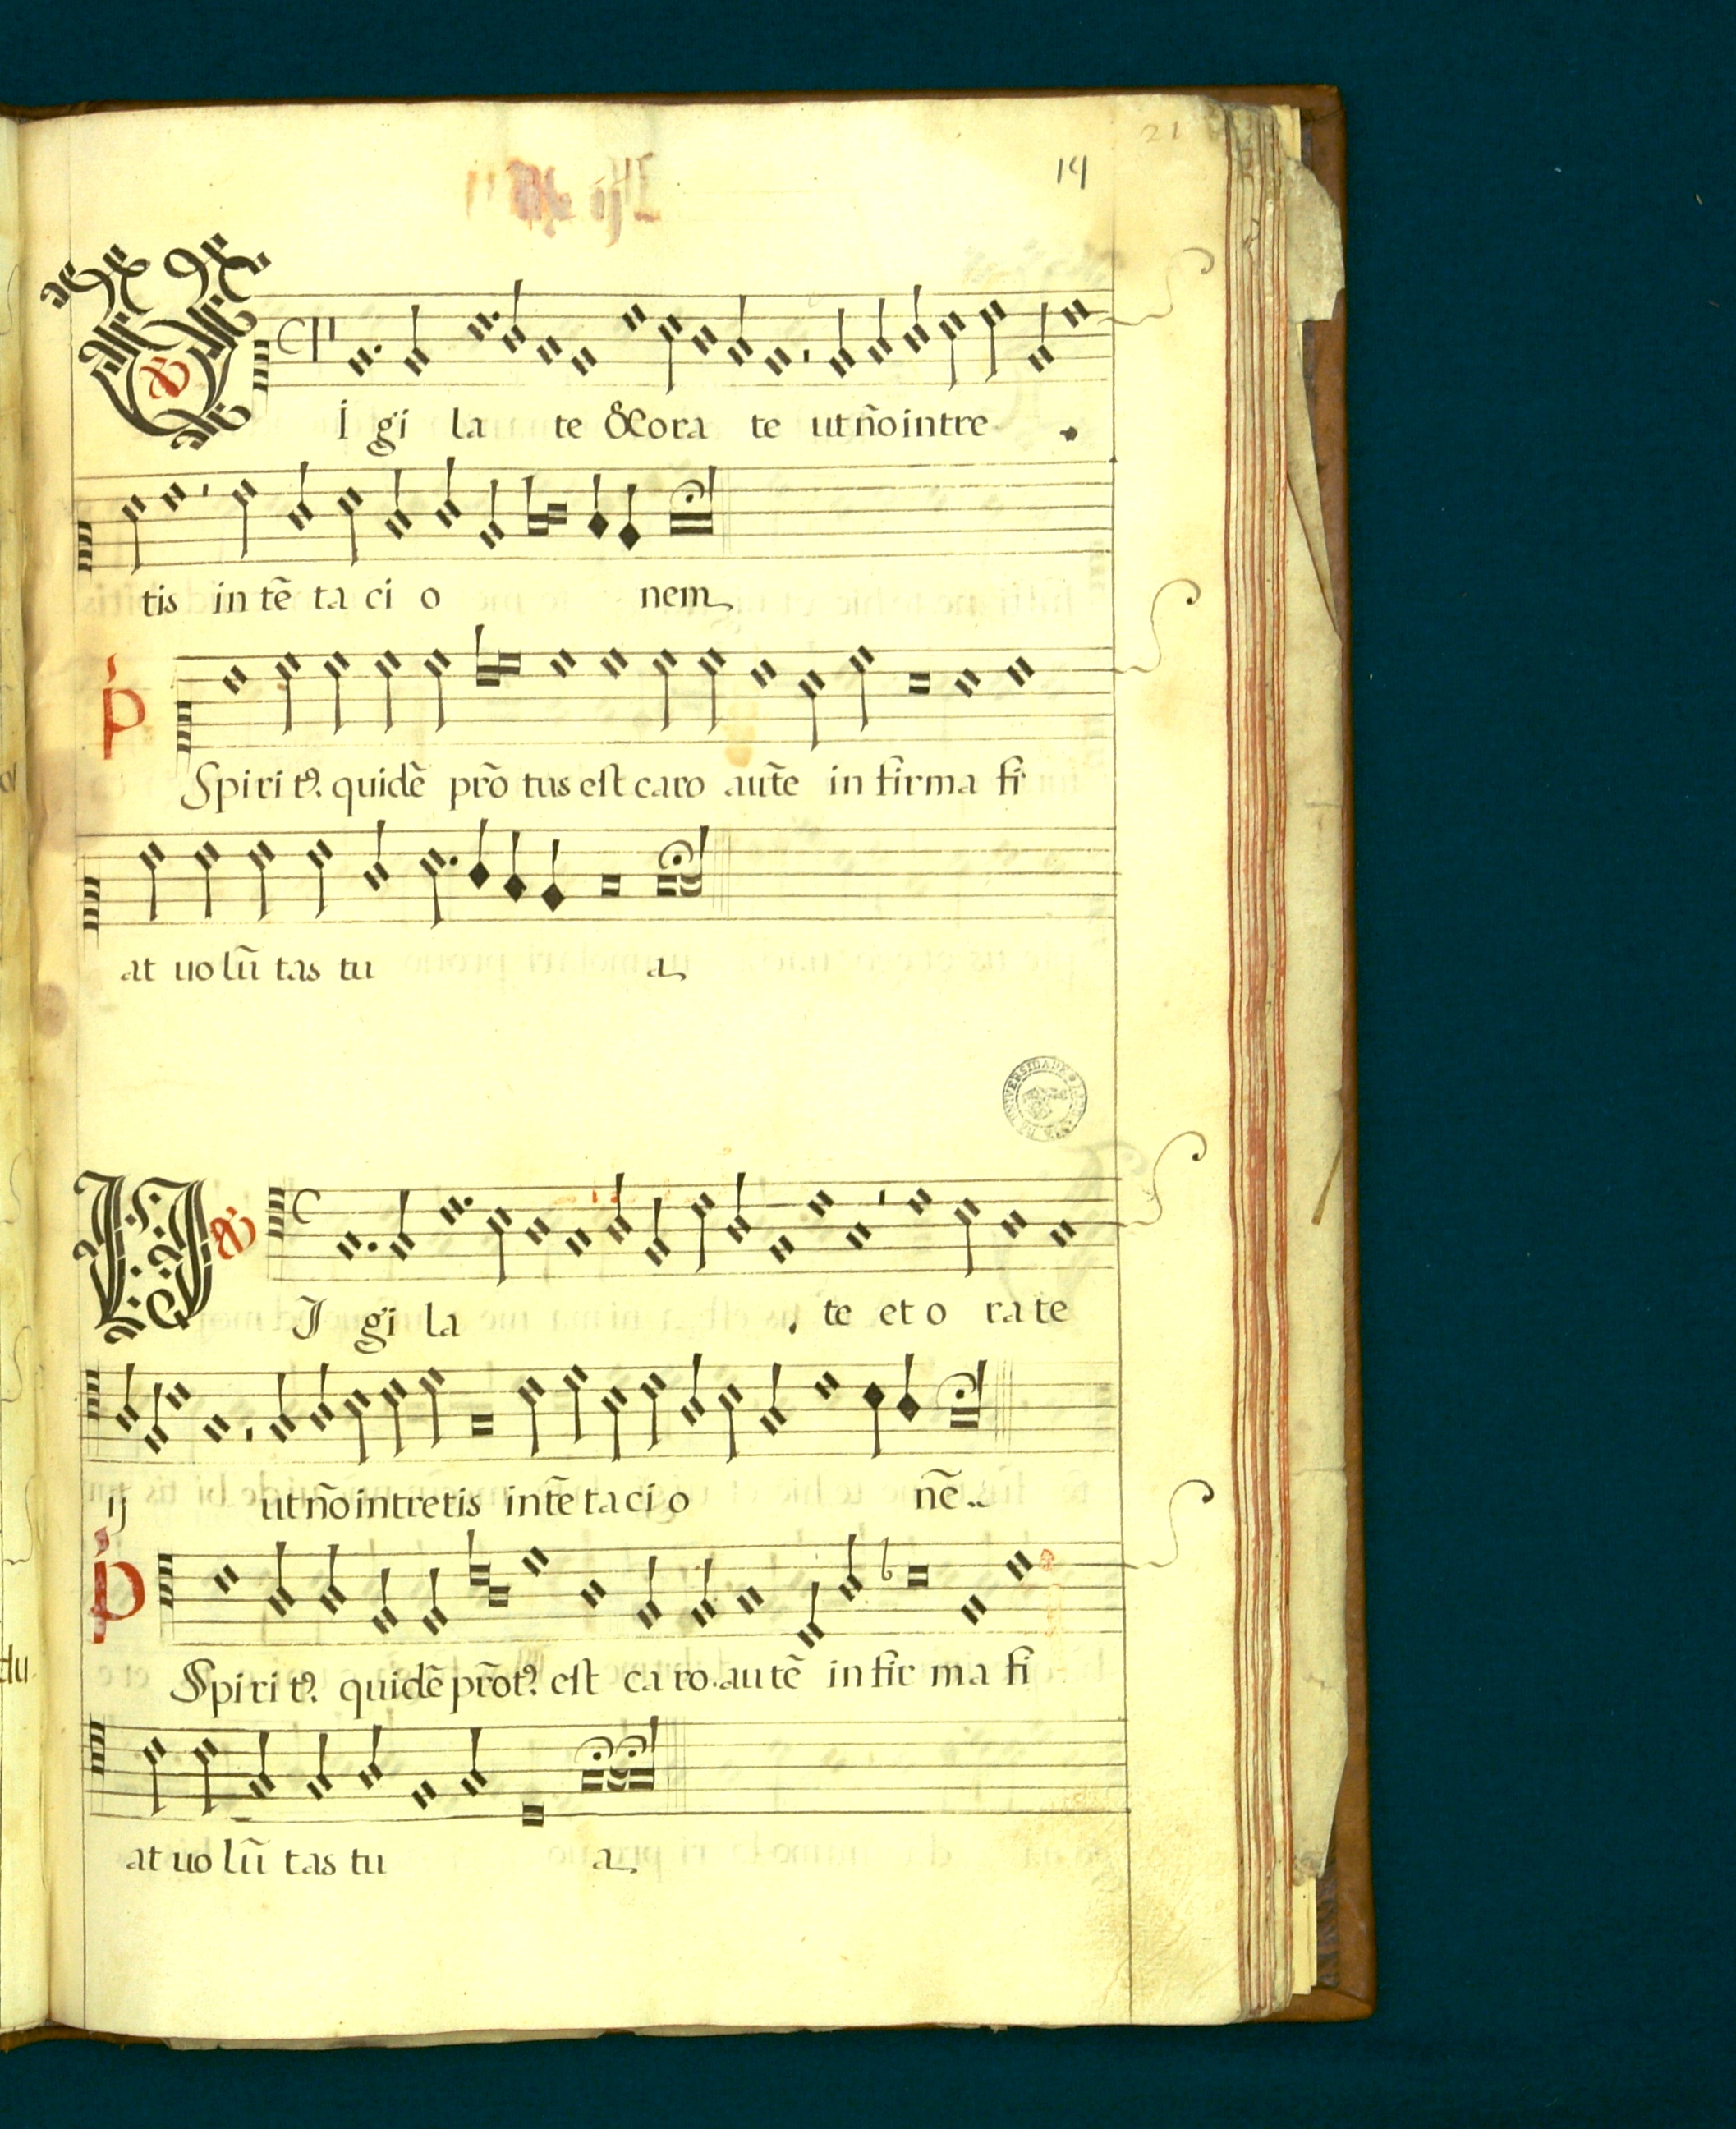 21
14
V
Igi la te &ora te ut ño intre
tis in tẽ ta ci o nem
p
Spiri tꝰ. quidẽ prõ tus est caro autẽ in firma fi
at uo lũ tas tu a
V
I gi la te et o ra te
ij ut ño intretis in tẽ ta ci o nẽ
p
Spiri tꝰ. quidẽ prõtꝰ. est ca ro. autẽ in fir ma fi
at uo lũ tas tu a